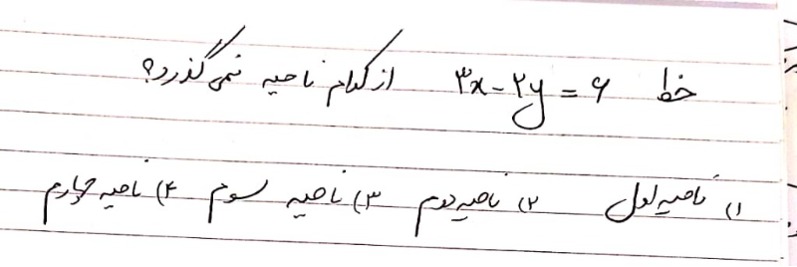 خط ۳x - ۲y = ۶ از کدام ناحیه نمی گذرد؟
۱) ناحیه اول ۲) ناحیه دوم ۳) ناحیه سوم ۴) ناحیه چهارم